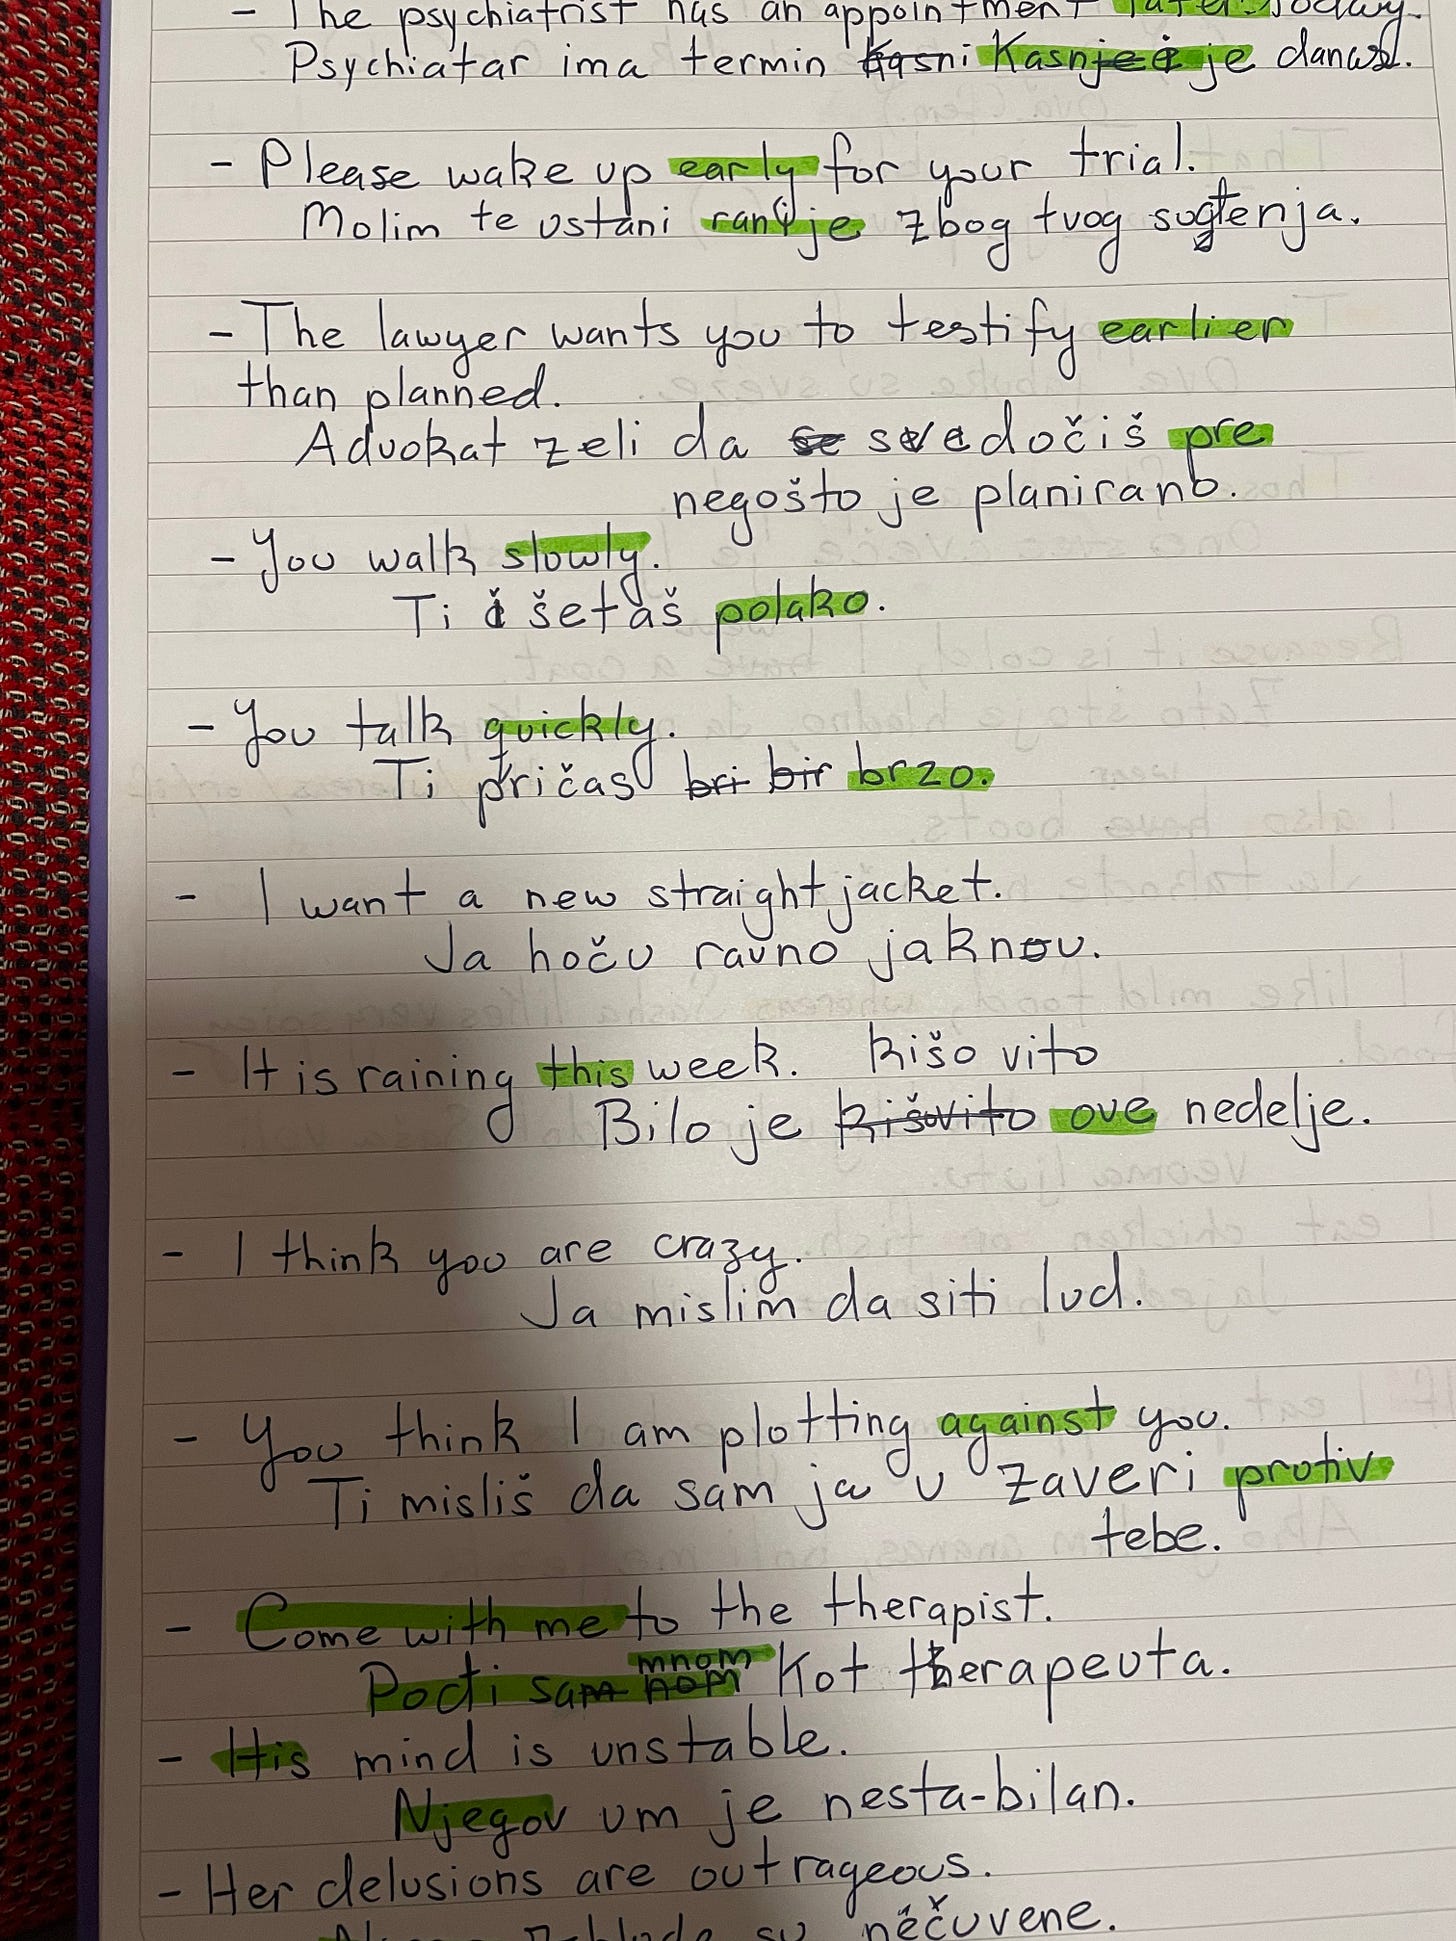 - The psychiatrist has an appointment later today.
Psychiatar ima termin kasni Kasnje je danas.
- Please wake up early for your trial.
Molim te ustani ranije zbog tvog suđenja.
- The lawyer wants you to testify earlier
than planned.
Advokat zeli da se svedočiš pre
negošto je planirano.
- You walk slowly.
Ti šetaš polako.
- You talk quickly.
Ti pričas bri bir brzo.
- I want a new straight jacket.
Ja hoču ravno jaknu.
- It is raining this week. kišo vito
Bilo je kišovito ove nedelje.
- I think you are crazy.
Ja mislim da si ti lud.
- You think I am plotting against you.
Ti misliš da sam ja u zaveri protiv
tebe.
- Come with me to the therapist.
mnom
Podi sam nom Kot therapeuta.
- His mind is unstable.
Njegov um je nesta-bilan.
- Her delusions are outrageous.
su nečuvene.